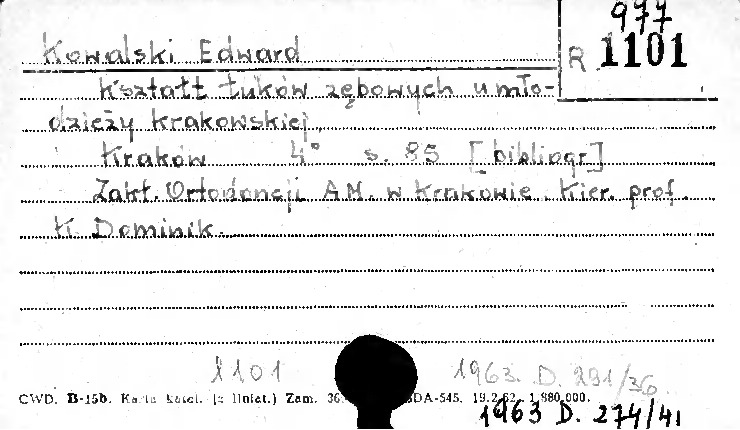 977
Kowalski Edward
R 1101
Kształt łuków zębowych u mło-
dzieży krakowskiej.
Kraków 4° s. 85 [bibliogr.]
Zakł. Ortodoncji A.M. w Krakowie. Kier. prof.
K. Dominik.
1101
1963. D. 291/36
CWD. B-15b. Karta katal. (z liniat.) Zam. 36 DA-545. 19.2.62. 1,880,000.
1963 D. 274/41